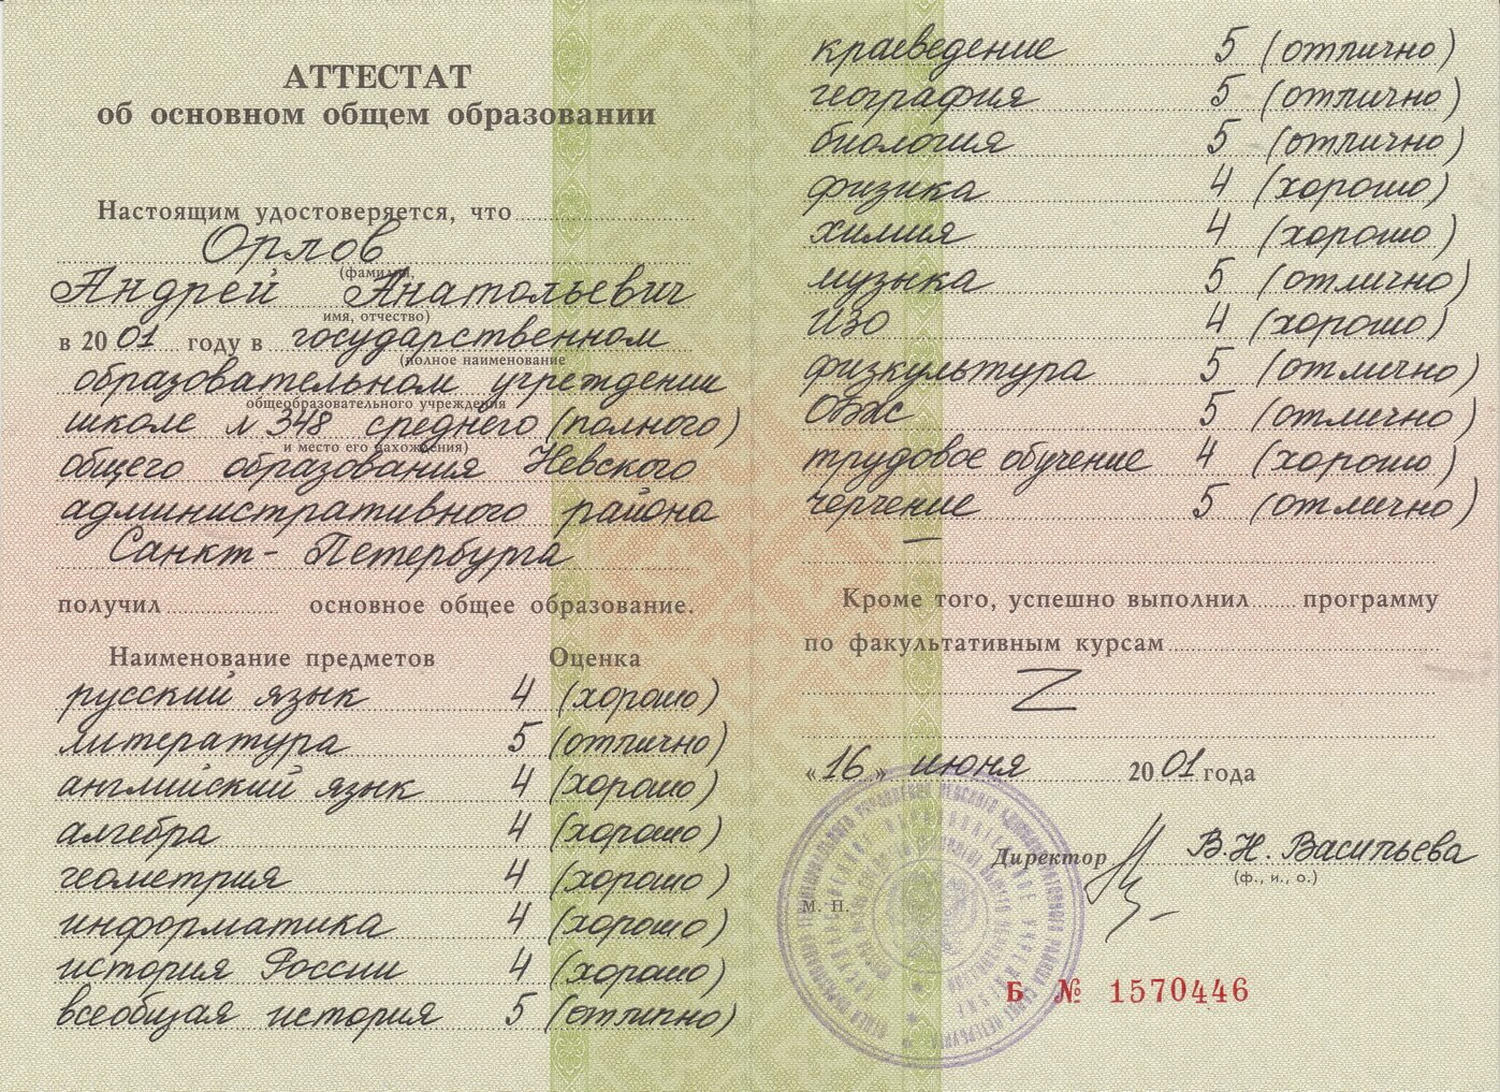 АТТЕСТАТ
об основном общем образовании
Настоящим удостоверяется, что
Орлов
(фамилия,
Андрей Анатольевич
имя, отчество)
в 2001 году в государственном
(полное наименование
образовательном учреждении
общеобразовательного учреждения
школе № 348 среднего (полного)
и место его нахождения)
общего образования Невского
административного района
Санкт-Петербурга
получил основное общее образование.
Наименование предметов Оценка
русский язык 4 (хорошо)
литература 5 (отлично)
английский язык 4 (хорошо)
алгебра 4 (хорошо)
геометрия 4 (хорошо)
информатика 4 (хорошо)
история России 4 (хорошо)
всеобщая история 5 (отлично)
краеведение 5 (отлично)
география 5 (отлично)
биология 5 (отлично)
физика 4 (хорошо)
химия 4 (хорошо)
музыка 5 (отлично)
ИЗО 4 (хорошо)
физкультура 5 (отлично)
ОБЖ 5 (отлично)
трудовое обучение 4 (хорошо)
черчение 5 (отлично)
Кроме того, успешно выполнил программу
по факультативным курсам
Z
«16» июня 2001 года
Директор В.Н. Васильева
(ф., и., о.)
М. П.
Б № 1570446